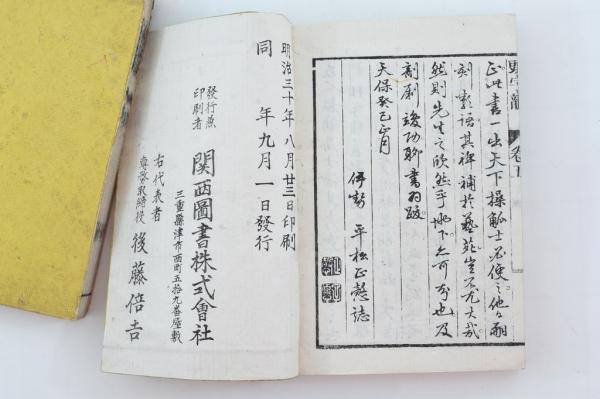 正此書一出天下操觚士不必使之他而
刻意語其裨補於藝苑豈不尤大哉
然則先生之欣然乎地下亦可知也及
剞劂竣功聊書爲跋
天保癸巳正月
伊勢 平松正愨誌
卷五
明治三十年八月廿三日印刷
同 年九月一日發行
發行兼
印刷者
關西圖書株式會社
三重縣津市西町五拾九番屋敷
右代表者
專務取締役
後藤倍吉